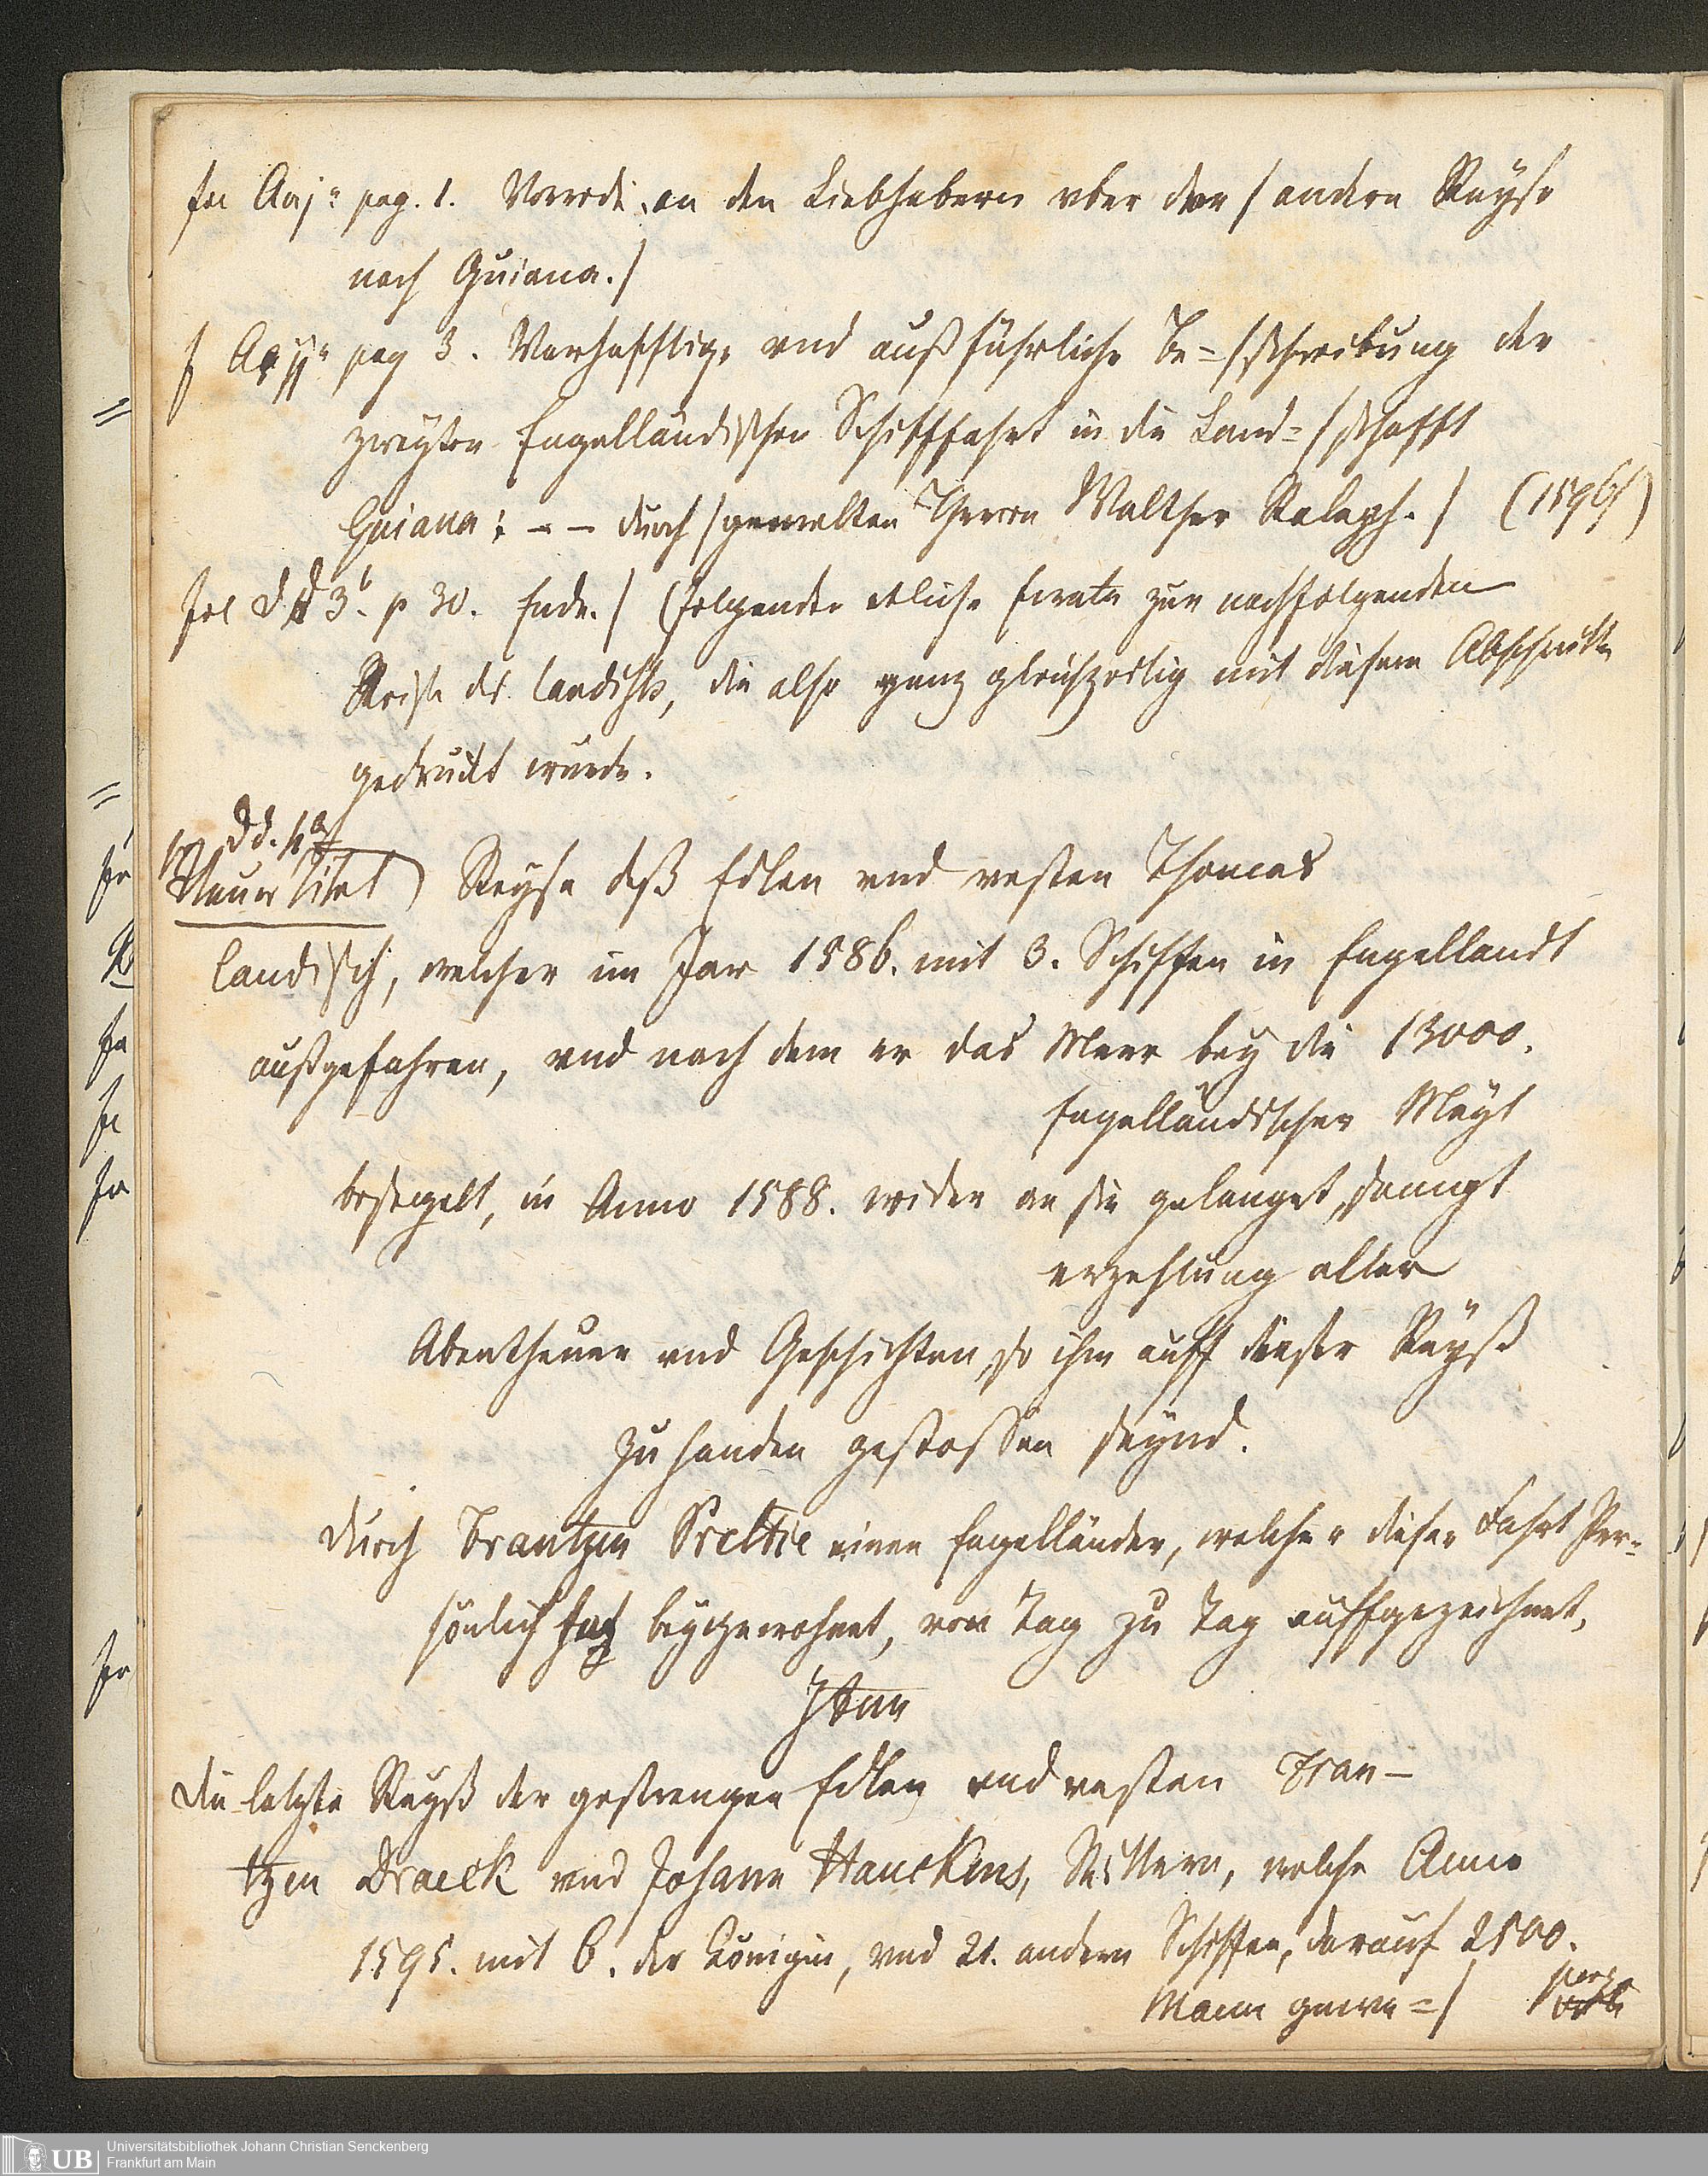 fol Aaj a pag. 1. Vorrede an den Liebhabern vber der / andern Reyse
nach Guiana. /
f Aa ij a pag 3. Warhafftige vnd außführliche Be= / schreibung der
zweyten Engelländischen Schifffahrt in die Land= / schafft
Guiana: – – durch / gemelten Herrn Walther Ralegh. / (1596)
fol Dd 3 b. p 30. Ende. / (folgendte etliche Errata zur nachfolgenden
Reise des Candishs, die also ganz gleichzeitig mit diesem Abschnitte
gedruckt wurde.
Dd. 4 a
Neuer Titel) Reyse deß Edlen vnd vesten Thomas
Candisch, welcher im Jar 1586. mit 3. Schiffen in Engellandt
außgefahren, vnd nach dem er das Meer bey die 13000.
Engelländischer Meyl
besegelt, in Anno 1588. wider an sie gelanget, sampt
erzehlung aller
Abentheuer vnd Geschichten, so ihm auff dieser Reyß
zu handen gestossen seynd.
durch Frantzen Prettie einen Engelländer, welcher dieser Fahrt Per=
sönlich hat beygewohnet, von Tag zu Tag auffgezeichnet,
Item
die letzte Reyß der gestrengen Edlen vnd vesten Fran–
tzen Draeck vnd Johann Hauckens, Rittern, welche Anno
1595. mit 6. der Königin, vnd 21. andern Schiffen, darauf 2500.
Mann gewe= /
Universitätsbibliothek Johann Christian Senckenberg
UB Frankfurt am Main